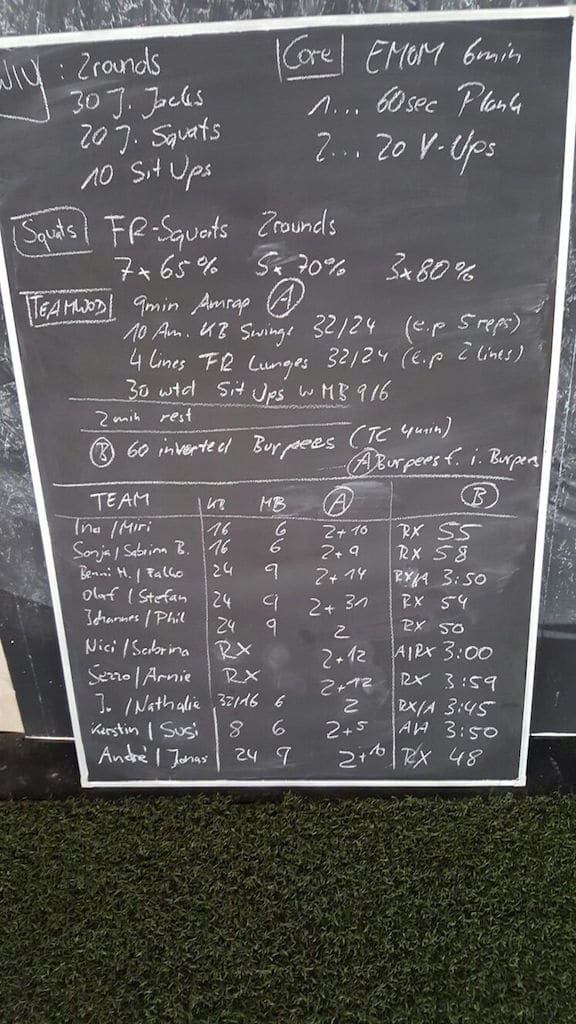 W/U : 2rounds
30 J. Jacks
20 J. Squats
10 Sit Ups
Core EMOM 6min
1... 60sec Plank
2... 20 V-Ups
Squats FR-Squats 2rounds
7x65% 5x70% 3x80%
TEAMWOD 9min Amrap A
10 Am. KB Swings 32/24 (e.p 5 reps)
4 Lines FR Lunges 32/24 (e.p 2 lines)
30 wtd Sit Ups w MB 9/6
2 min rest
B 60 inverted Burpees (TC 4min)
A Burpees f. i. Burpees
TEAM KB MB A B
Ina / Miri 16 6 2+10 RX 55
Sonja / Sabrina B. 16 6 2+9 RX 58
Benni H. / Falko 24 9 2+14 RX/A 3:50
Olaf / Stefan 24 9 2+31 RX 54
Johannes / Phil 24 9 2 RX 50
Nici / Sabrina RX 2+12 A/RX 3:00
Sezzo / Arnie RX 2+12 RX 3:59
J. / Nathalie 32/16 6 2 RX/A 3:45
Kerstin / Susi 8 6 2+5 A/A 3:50
André / Jonas 24 9 2+10 RX 48